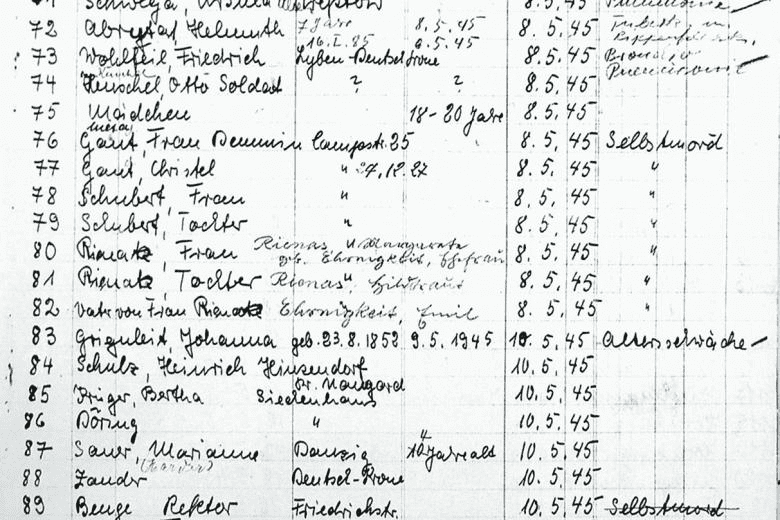 72 Helmuth 7 Jahre 8.5.45 8.5.45
16.I.25 6.5.45
73 Wohlfeil, Friedrich Lyben-Deutsch Krone 8.5.45
74 Henschel, Otto Soldat ? ? 8.5.45
75 Mädchen 18-20 Jahre 8.5.45
76 Gant, Frau Demmin 25 8.5.45 Selbstmord
77 Gant, Christel " 27.12.27 8.5.45 "
78 Schubert, Frau " 8.5.45 "
79 Schubert, Tochter " 8.5.45 "
80 Frau Rienas, 8.5.45 "
geb. Ehronigkeit, Ehefrau
81 Tochter Rienas " 8.5.45 "
82 Vater von Frau Ehronigkeit, Emil 8.5.45 "
83 Griguleit, Johanna geb. 23.8.1852 9.5.1945 10.5.45 Altersschwäche
84 Schulz, Heinrich Hinzendorf 10.5.45
Kr. Naugard
85 Bertha Siedenhaus 10.5.45
86 Döring " 10.5.45
87 Sauer, Marianne Danzig Jahre alt 10.5.45
88 Zander Deutsch-Krone 10.5.45
89 Benge Rektor Friedrichstr. 10.5.45 Selbstmord